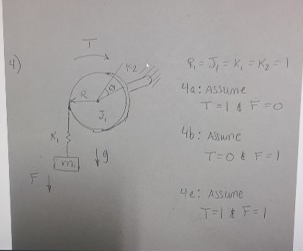 4)
T
K2
θ
R
J1
K1
m
g
F
R = J1 = K1 = K2 = 1
4a: Assume
T=1 & F=0
4b: Assume
T=0 & F=1
4c: Assume
T=1 & F=1